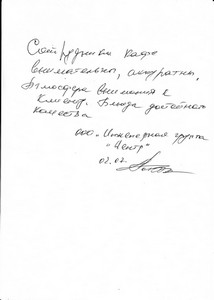 Сотрудники кафе
внимательны, аккуратны.
Атмосфера внимания к
клиенту. Блюда достойного
качества
ООО "Инженерная группа
"Центр"
02.02.